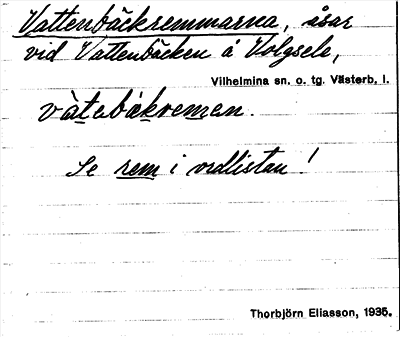 Vattenbäckremmarna, åsar
vid Vattenbäcken å Volgsele,
Vilhelmina sn. o. tg. Västerb. l.
vàtebä̀kremen.
Se rem i ordlistan!
Thorbjörn Eliasson, 1935.